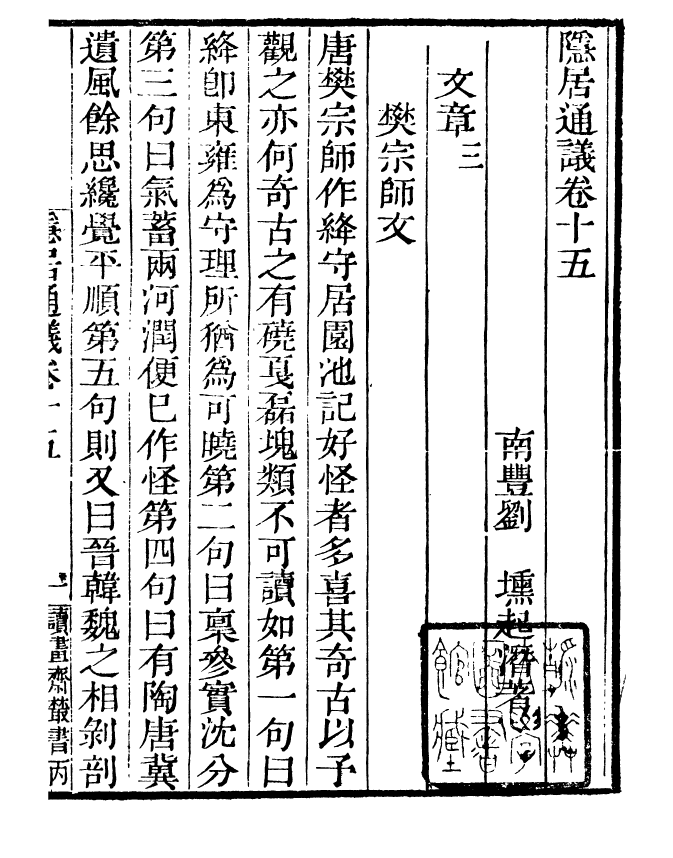 隱居通議卷十五
南豐劉　壎起潛著
文章三
樊宗師文
唐樊宗師作絳守居園池記好怪者多喜其奇古以予
觀之亦何奇古之有磽戛磊塊類不可讀如第一句曰
絳卽東雍爲守理所猶爲可曉第二句曰稟參實沈分
第三句曰氣蓄兩河潤便巳作怪第四句曰有陶唐冀
遺風餘思纔覺平順第五句則又曰晉韓魏之相剝剖
隱居通議卷十五
一
讀畫齋叢書丙